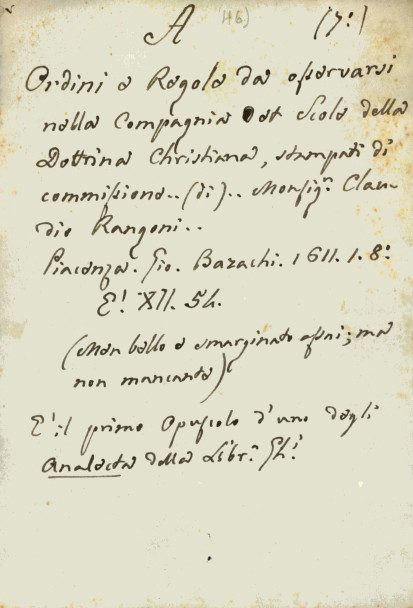 A (46) (7:)
Ordini e Regole da osservarsi
nella Compagnia et Scole della
Dottrina Christiana, stampati di
commissione..(di).. Monsigr. Clau-
dio Rangoni..
Piacenza. Gio. Bazachi. 1611. 1. 8:
E! XII. 54.
(Men bello e smarginato assai; ma
non mancante)
E' il primo Opuscolo d'uno degli
Analecta della Libr.